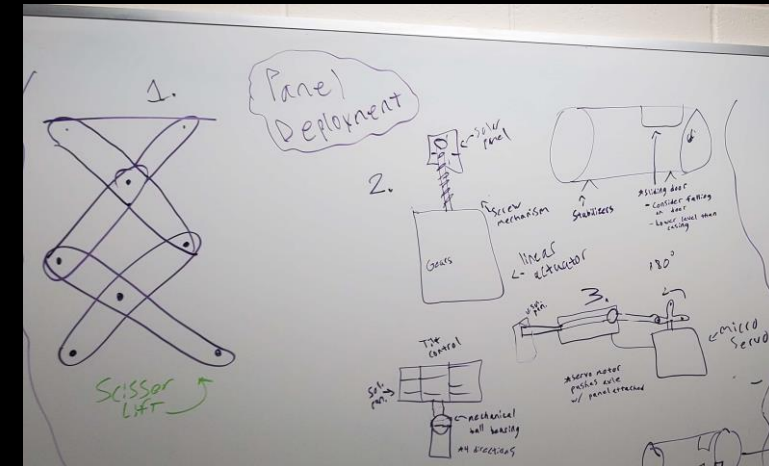 1.
Panel
Deployment
Scissor
Lift
2.
Solar
panel
Screw
mechanism
Gears
linear
actuator
Stabilizers
*Sliding door
- Consider falling
on door
- lower level than
casing
3.
180°
micro
Servo
*servo motor
pushes axle
w/ panel attached
Tilt
control
Sol.
pan.
mechanical
ball bearing
*4 directions